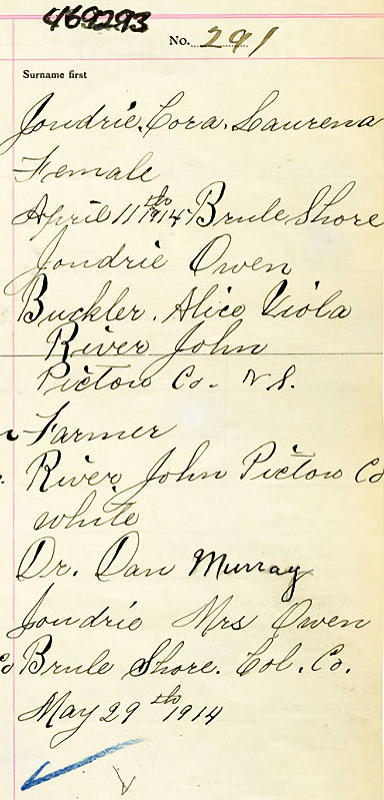 469293
No. 291
Surname first
Jondrie. Cora. Laurena
Female
April 11th 1914 Brule Shore
Jondrie Owen
Buckler. Alice Viola
River John
Pictou Co. N S.
Farmer
River John Pictou Co
white
Dr. Dan Murray
Jondrie Mrs Owen
Brule Shore. Col. Co.
May 29th 1914